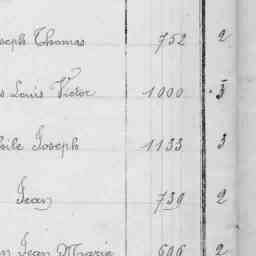 Joseph Thomas 752 2
Louis Victor 1000 3
Joseph 1133 3
Jean 739 2
Jean Marie 696 2